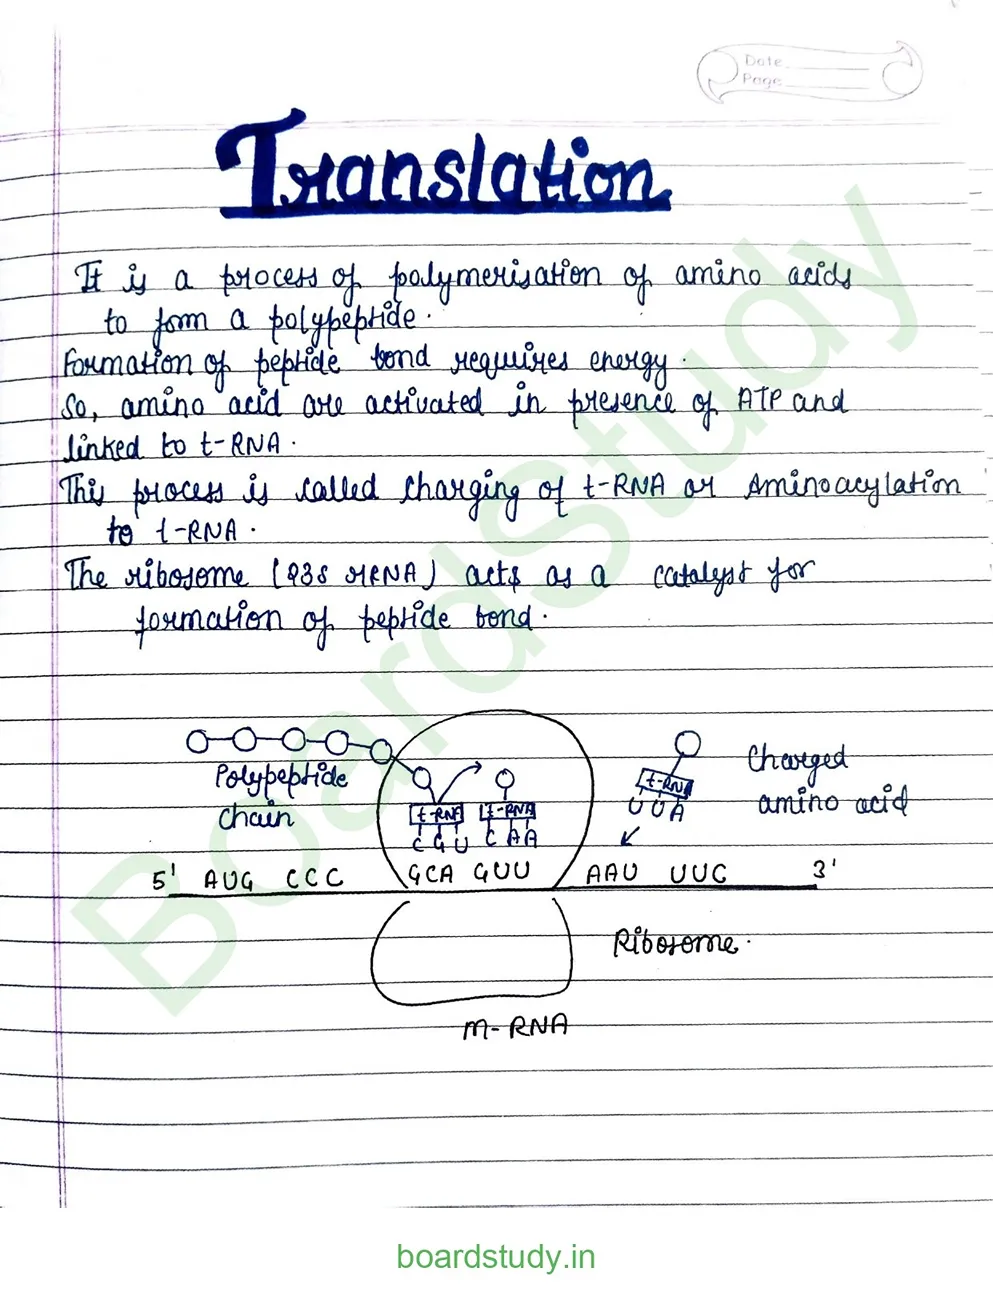 Date
Page
Translation
It is a process of polymerisation of amino acids
to form a polypeptide.
Formation of peptide bond requires energy.
So, amino acid are activated in presence of ATP and
linked to t-RNA.
This process is called charging of t-RNA or Aminoacylation
to t-RNA.
The ribosome (23S rRNA) acts as a catalyst for
formation of peptide bond.
Polypeptide
chain
t-RNA t-RNA
C G U C A A
t-RNA
U U A
Charged
amino acid
5' AUG CCC GCA GUU AAU UUG 3'
Ribosome.
m-RNA
BoardStudy
boardstudy.in